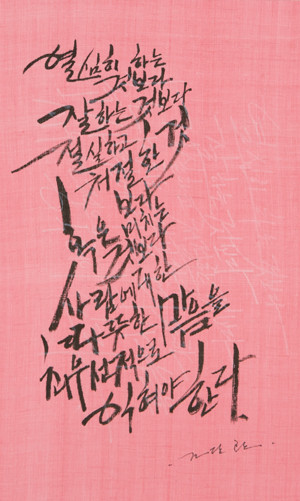 열심히 하는
것보다
잘하는 것보다
절실하고
처절한 것
보다는
혹은 미치는
것보다
사람에 대한
따뜻한 마음을
최우선적으로
익혀야 한다.